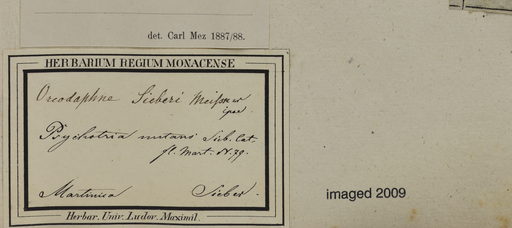 det. Carl Mez 1887/88.
HERBARIUM REGIUM MONACENSE
Oreodaphne Sieberi Meissner
ipse
Psychotria nutans Sieb. Cat.
fl. Mart. N. 79.
Martinica Sieber.
Herbar. Univ. Ludov. Maximil.
imaged 2009